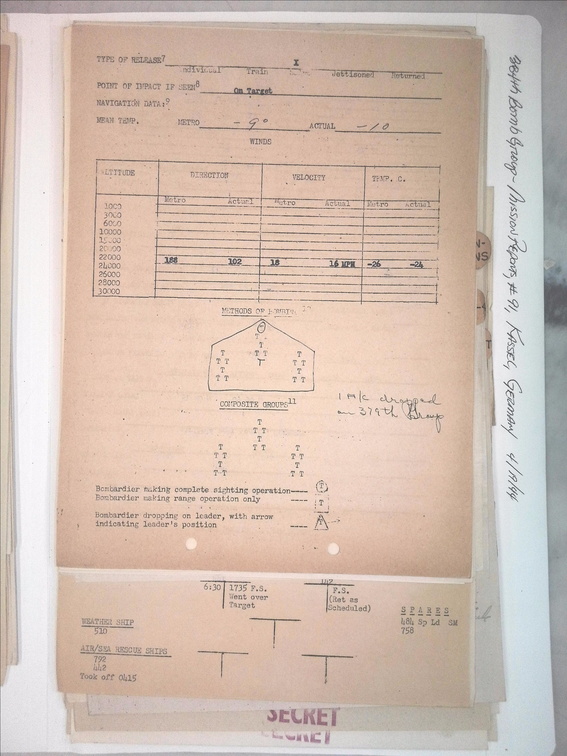 TYPE OF RELEASE7 X
Individual Train Jettisoned Returned
POINT OF IMPACT IF SEEN8 On Target
NAVIGATION DATA:9
MEAN TEMP. METRO -9° ACTUAL -10
WINDS
ALTITUDE DIRECTION VELOCITY TEMP. C.
Metro Actual Metro Actual Metro Actual
1000
3000
6000
10000
15000
20000
22000 188 102 18 16 MPH -26 -24
24000
26000
28000
30000
METHODS OF
T
T
T T T T
T T T T T
T T T T
COMPOSITE GROUPS11
1 A/C dropped
on 379th Group
T
T T
T
T T T T
T T T T
T T
T T T T
Bombardier making complete sighting operation---- T
Bombardier making range operation only ---- T
Bombardier dropping on leader, with arrow
indicating leader's position ---- T
6:30 1735 F.S.
Went over
Target
F.S.
(Ret as
Scheduled)
SPARES
484 Sp Ld SM
758
WEATHER SHIP
510
AIR/SEA RESCUE SHIPS
792
442
Took off 0415
SECRET
SECRET
384th Bomb Group - Mission Reports, #91, Kassel, Germany 4/19/44